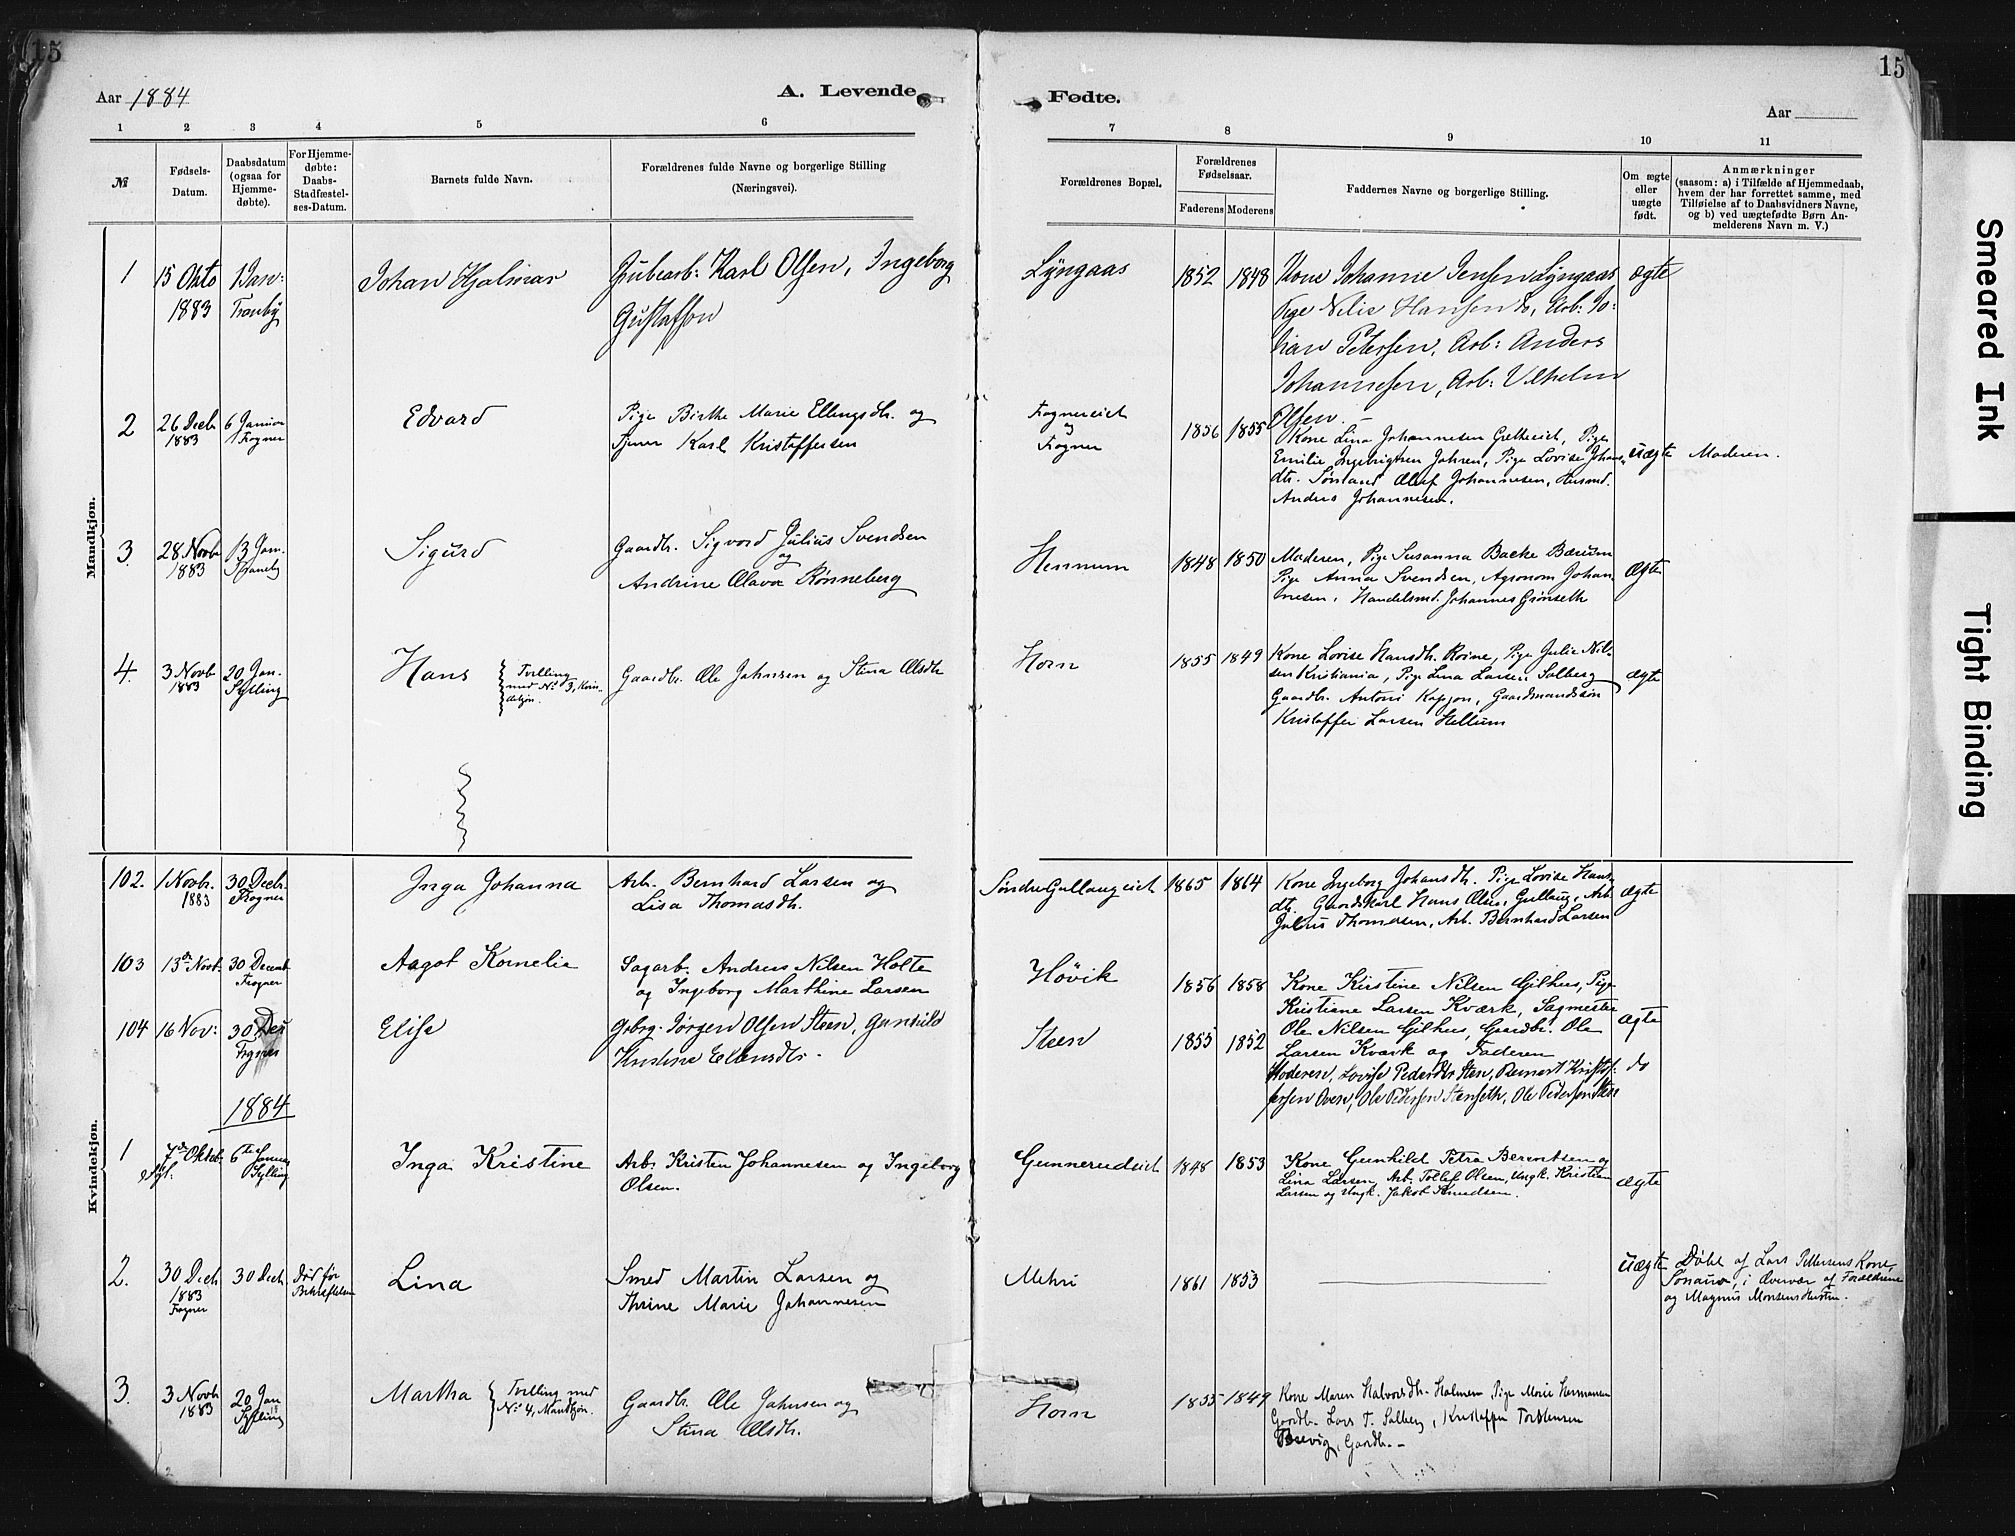 15
15
Aar 1884
A. Levende
Fødte.
Aar
1 2 3 4 5 6 7 8 9 10 11
№
Fødsels-
Datum.
Daabsdatum
(ogsaa for
Hjemme-
døbte).
For Hjemme-
døbte:
Daabs-
Stadfæstel-
ses-Datum.
Barnets fulde Navn.
Forældrenes fulde Navne og borgerlige Stilling
(Næringsvei).
Forældrenes Bopæl.
Forældrenes
Fødselsaar.
Faderens Moderens
Faddernes Navne og borgerlige Stilling.
Om ægte
eller
uægte
født.
Anmærkninger
(saasom: a) i Tilfælde af Hjemmedaab,
hvem der har forrettet samme, med
Tilføielse af to Daabsvidners Navne,
og b) ved uægtefødte Børn An-
melderens Navn m. V.)
Mandkjøn.
1
15 Okto
1883
1 Jan:
Tranby
Johan Hjalmar
Grubearb: Karl Olsen, Ingeborg
Gustafson
Lyngaas
1852 1848
Kone Johanne Jensen Lyngaas
Pige Nilie Hansen do, Arb: Jo-
han Petersen, Arb: Anders
Johannesen, Arb: Vilhelm
Olsen.
ægte
2
26 Decb
1883
6 Januar
Frogner
Edvard
Pige Birthe Marie Ellingsdtr. og
Tjener Karl Kristoffersen
Frognereiet
og
Frogner
1856 1855
Kone Lina Johannesen Gretteeiet, Pige
Emilie Ingebrigtsen Jahren, Pige Lovise Johans-
dtr. Sørsland Oluf Johannesen, Husmd.
Anders Johannesen.
uægte
Moderen.
3.
28 Novb
1883
13 Jan.
Tranby
Sigurd
Gaardbr. Sigvord Julius Svendsen
og
Andrine Olava Rønneberg
Hennum
1848 1850
Moderen, Pige Susanna Bache Bærum
Pige Anna Svendsen, Agronom Johan-
nesen, Handelsmd. Johannes Grønseth
Ægte
4.
3 Novb
1883
20 Jan.
Sylling
Hans
Tvilling
med No 3, Kvin-
dekjøn.
Gaardbr. Ole Johnsen og Stina Olsdtr
Horn
1855 1849
Kone Lovise Hansdtr. Roine, Pige Julie Nil-
sen Kristiania, Pige Lina Larsen Solberg
Gaardbr. Antoni Kopperu, Gaardmandssøn
Kristoffer Larsen Hellum
ægte
Kvindekjøn.
102.
1 Novbr.
1883
30 Decbr.
Frogner
Inga Johanna
Arb. Bernhard Larsen og
Lisa Thomasdtr.
Søndre Gullaugeiet
1865 1864
Kone Ingeborg Johansdtr. Pige Lovise Hans-
dtr. Gaardskarl Hans Olsen, Gullaug, Arb.
Julius Thomasen, Arb. Bernhard Larsen
ægte
103
13de Novb.
30 Decemb
Frogner
Aagot Kornelia
Sagarb. Andreas Nilsen Holte
og Ingeborg Marthine Larsen
Høvik
1856 1858
Kone Kirstine Nilsen Gilhus, Pige
Kristiane Larsen Kværk, Sagmester
Ole Nilsen Gilhus, Gaardbr. Ole
Larsen Kværk og Faderen
ægte
104
16 Nov:
30 Dec
Frogner
Elise
Gsbrg. Jørgen Olsen Steen, Gunhild
Kristine Ellensdtr.
Steen
1855 1852
Moderen, Lovise Pedersdtr Sten, Reinert Kristof-
fersen Oven, Ole Pedersen Stenseth, Ole Pedersen Sten
do
1884
1
7de Oktob.
Syl:
6te Januar
Sylling
Inga Kristine
Arb. Kristen Johannesen og Ingeborg
Olsen.
Gunnerudeiet
1848 1853
Kone Gunhild Petra Berentsen og
Lina Larsen, Arb. Tollef Olsen, Ungk. Kristian
Larsen og Ungk. Jakob Knudsen.
ægte
2.
30 Decb
1883
Frogner
30 Decb.
Død før
Bekræftelsen
Lina
Smed Martin Larsen og
Thrine Marie Johannesen
Mehri
1861 1853
uægte
Døbt af Lars Pettersens Kone,
i Overvær af Forældrene
og Magnus Monsens Hustru.
3.
3 Novb
1883
20 Jan
Sylling
Martha
Tvilling med
No 4, Mandkjøn.
Gaardbr. Ole Johnsen og
Stina Olsdtr.
Horn
1855 1849
Kone Maren Halvorsdtr. Holmen Pige Marie Hermansen
Gaardbr. Lars T. Solberg, Kristoffer Torstensen
Gaardbr.
Smeared Ink
Tight Binding